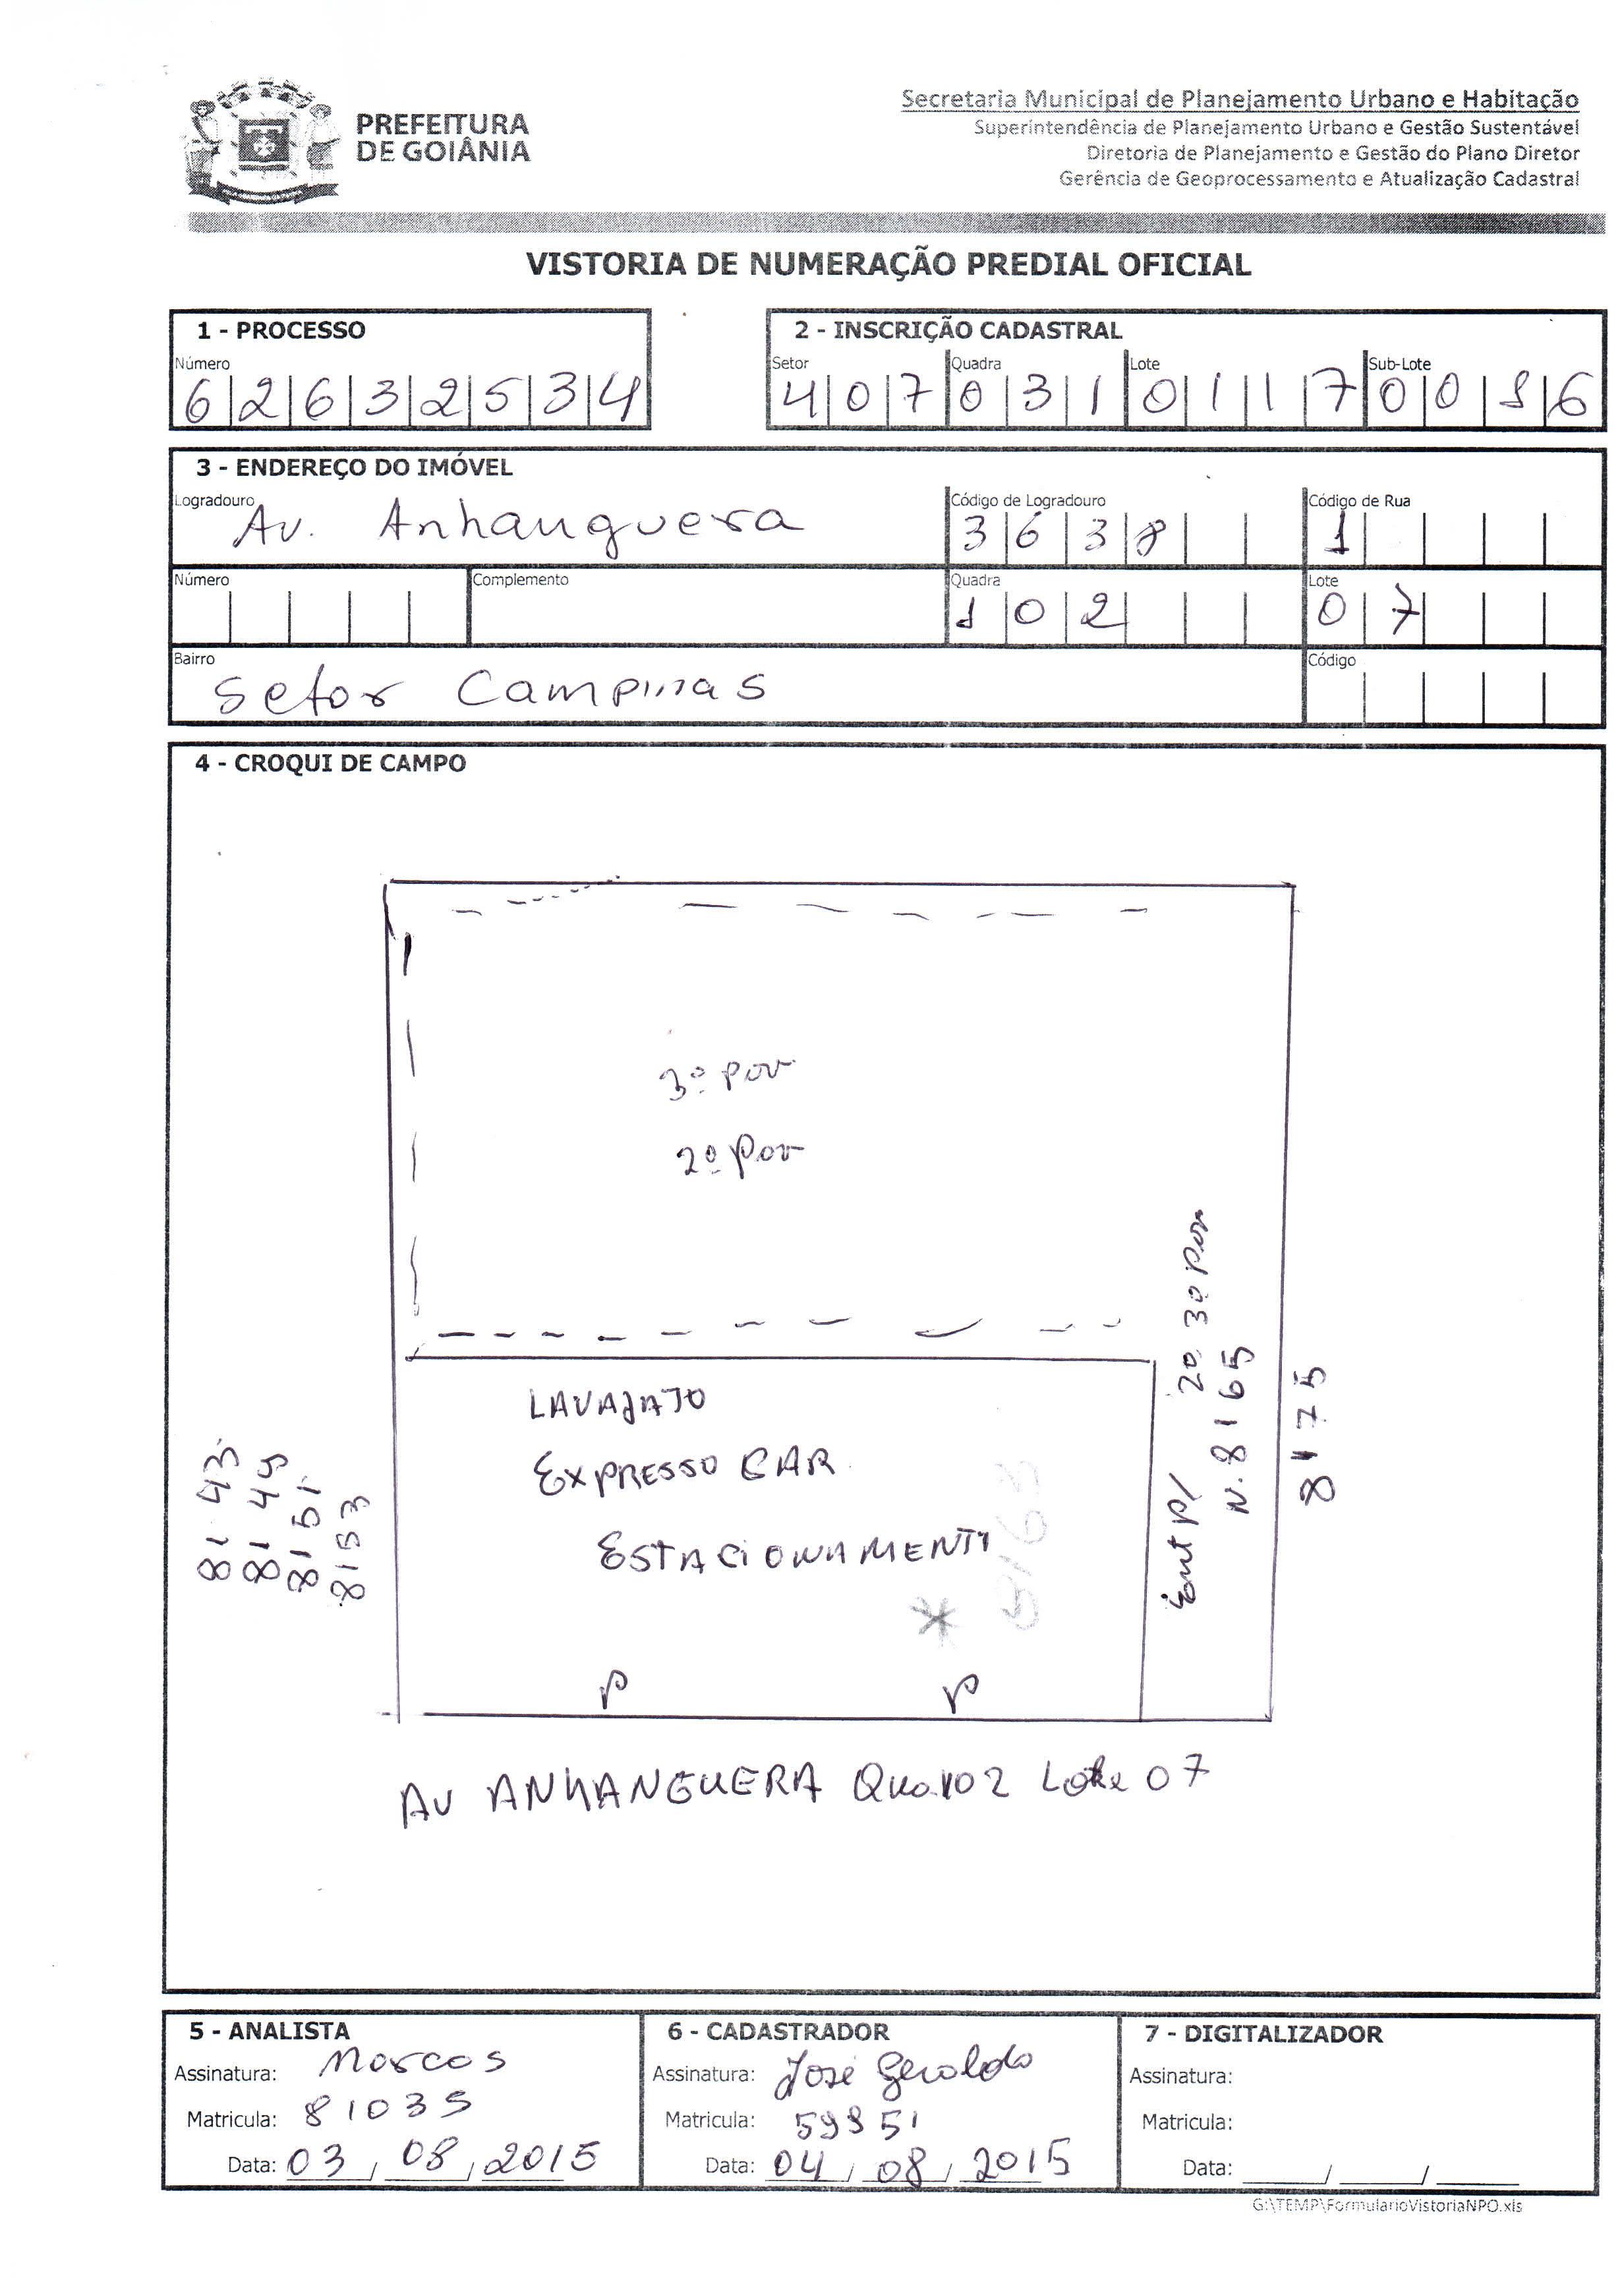 PREFEITURA
DE GOIÂNIA
Secretaria Municipal de Planejamento Urbano e Habitação
Superintendência de Planejamento Urbano e Gestão Sustentável
Diretoria de Planejamento e Gestão do Plano Diretor
Gerência de Geoprocessamento e Atualização Cadastral
VISTORIA DE NUMERAÇÃO PREDIAL OFICIAL
1 - PROCESSO
Número
62632534
2 - INSCRIÇÃO CADASTRAL
Setor Quadra Lote Sub-Lote
407 031 0117 0016
3 - ENDEREÇO DO IMÓVEL
Logradouro Av. Anhanguera
Código de Logradouro 3638
Código de Rua 1
Número
Complemento
Quadra 102
Lote 07
Bairro Setor Campinas
Código
4 - CROQUI DE CAMPO
3º pav
2º pav
LAVAJATO
EXPRESSO CAR
ESTACIONAMENT
* 8163
P P
Ent P/ 2º 3º Pav
N. 8165
8175
8143
8149
8151
8153
AV ANHANGUERA Qua 102 Lote 07
5 - ANALISTA
Assinatura: Marcos
Matricula: 81035
Data: 03/08/2015
6 - CADASTRADOR
Assinatura: José Geraldo
Matricula: 59851
Data: 04/08/2015
7 - DIGITALIZADOR
Assinatura:
Matricula:
Data: ____/____/____
G:\TEMP\FormularioVistoriaNPO.xls